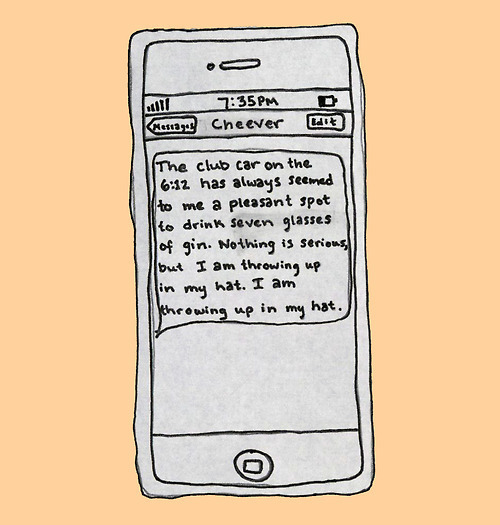 7:35PM
Messages Cheever Edit
The club car on the
6:12 has always seemed
to me a pleasant spot
to drink seven glasses
of gin. Nothing is serious,
but I am throwing up
in my hat. I am
throwing up in my hat.